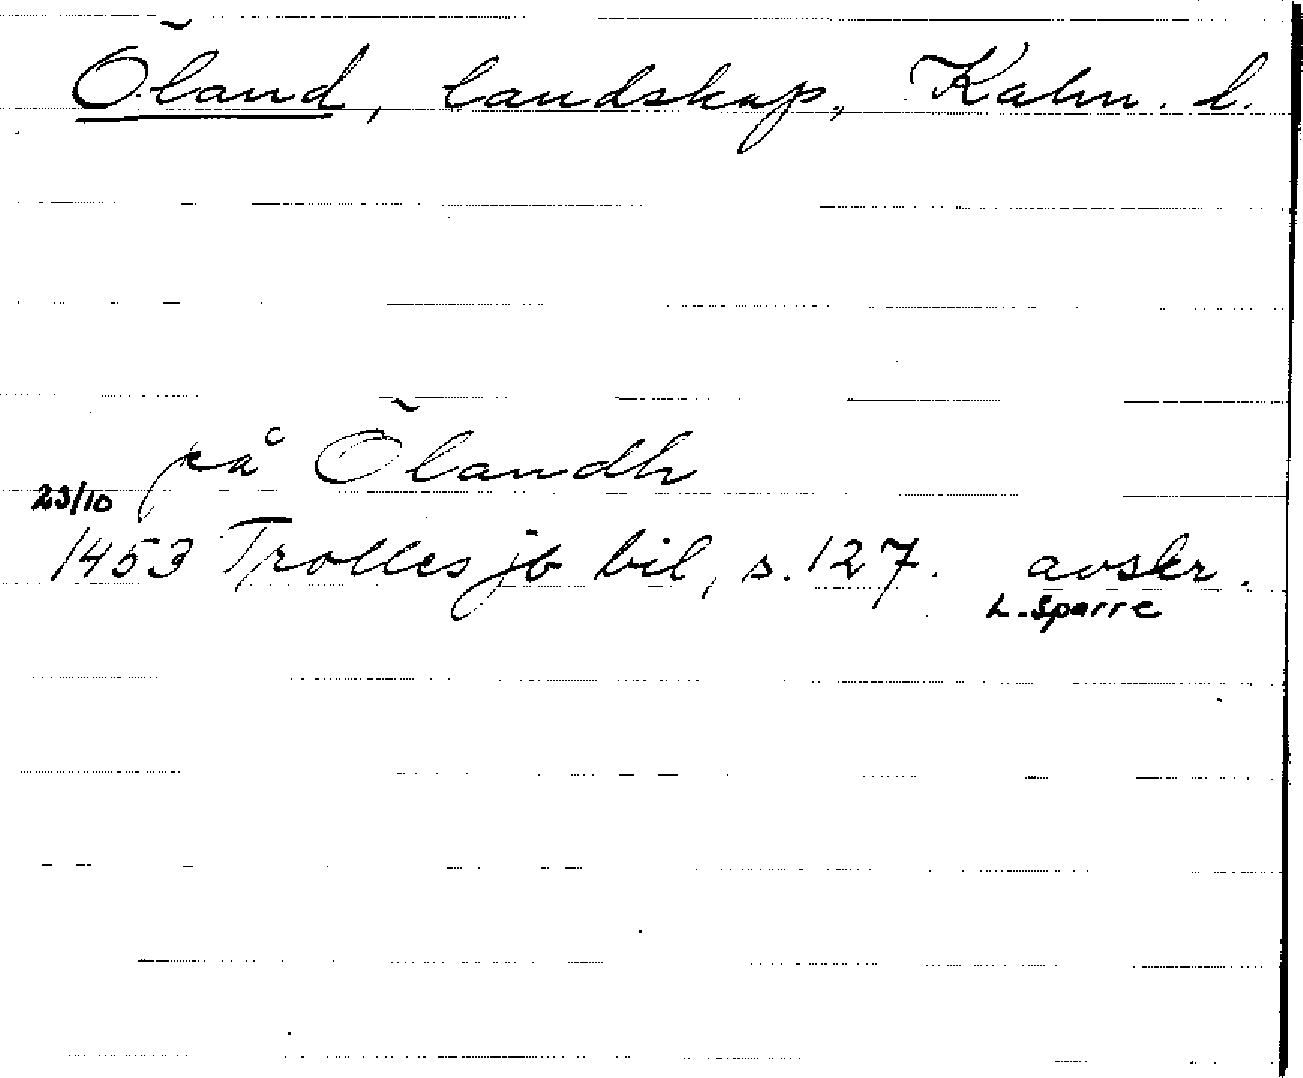 Öland, landskap, Kalm. l.
på Ölandh
23/10
1453 Trolles jb bil, s. 127. avskr.
L. Sparre